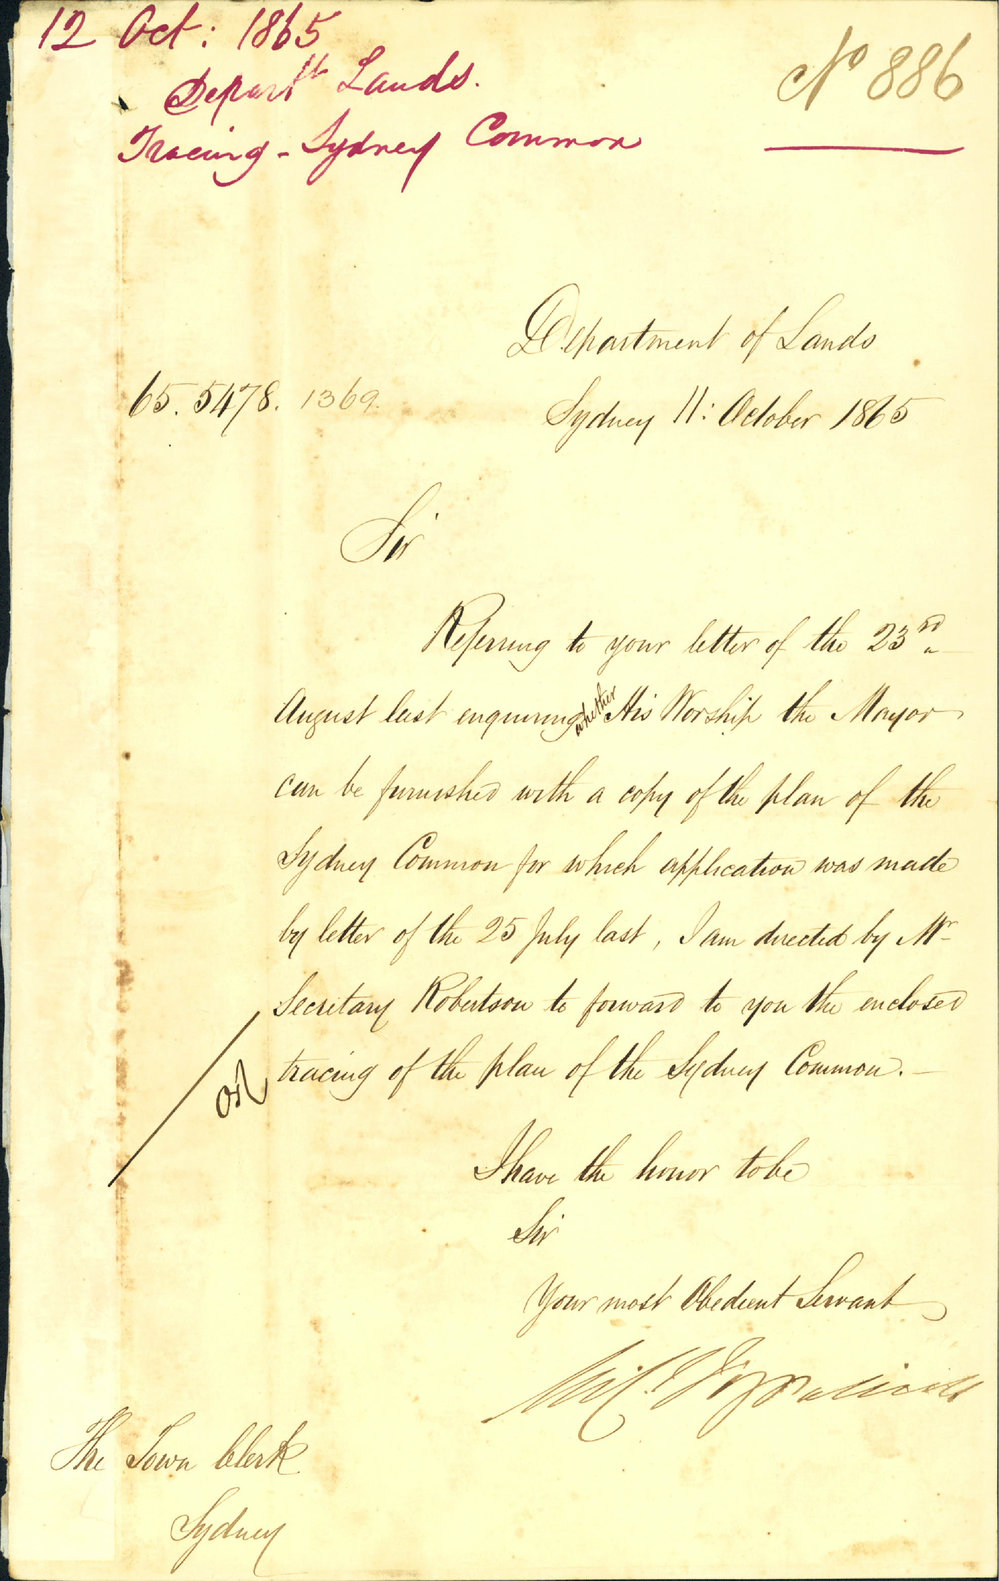 12 Oct: 1865
Departt Lands.
Tracing - Sydney Common
No 886
Department of Lands
65.5478. 1369.
Sydney 11: October 1865
Sir
Referring to your letter of the 23rd
August last enquiring whether His Worship the Mayor
can be furnished with a copy of the plan of the
Sydney Common for which application was made
by letter of the 25 July last, I am directed by Mr
Secretary Robertson to forward to you the enclosed
tracing of the plan of the Sydney Common. —
I have the honor to be
Sir
Your most Obedient Servant
Micl. Fitzpatrick
The Town Clerk
Sydney